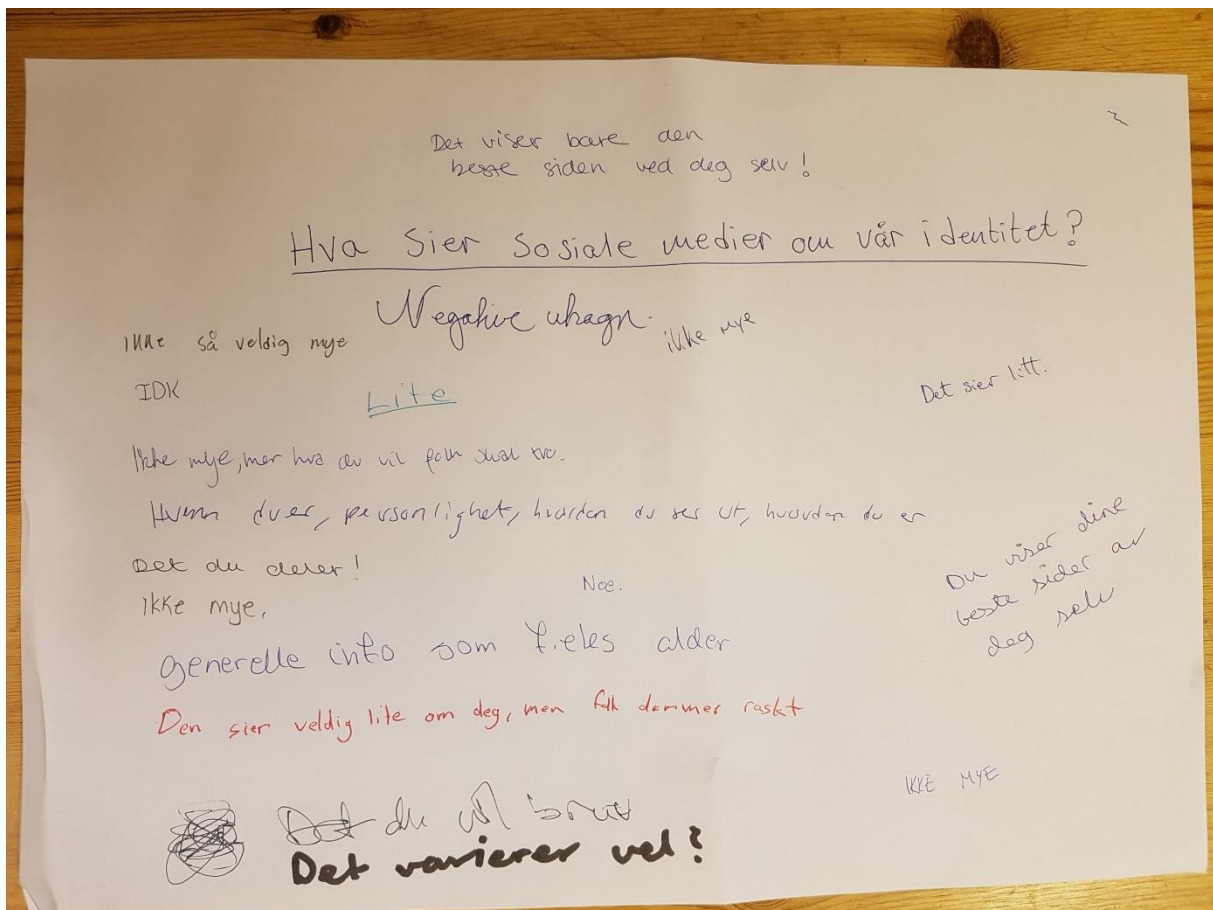 Det viser bare den
beste siden ved deg selv!
Hva Sier Sosiale medier om vår identitet?
Negative
Ikke så veldig mye
ikke mye
IDK
Lite
Det sier litt.
Ikke mye, mer hva du vil folk skal tro.
Hvem du er, personlighet, hvordan du ser ut, hvordan du er
Det du deler!
Noe.
Du viser dine
beste sider av
deg selv
Ikke mye,
generelle info som f.eks alder
Den sier veldig lite om deg, men folk dømmer raskt
IKKE MYE
Det du vil
Det varierer vel?